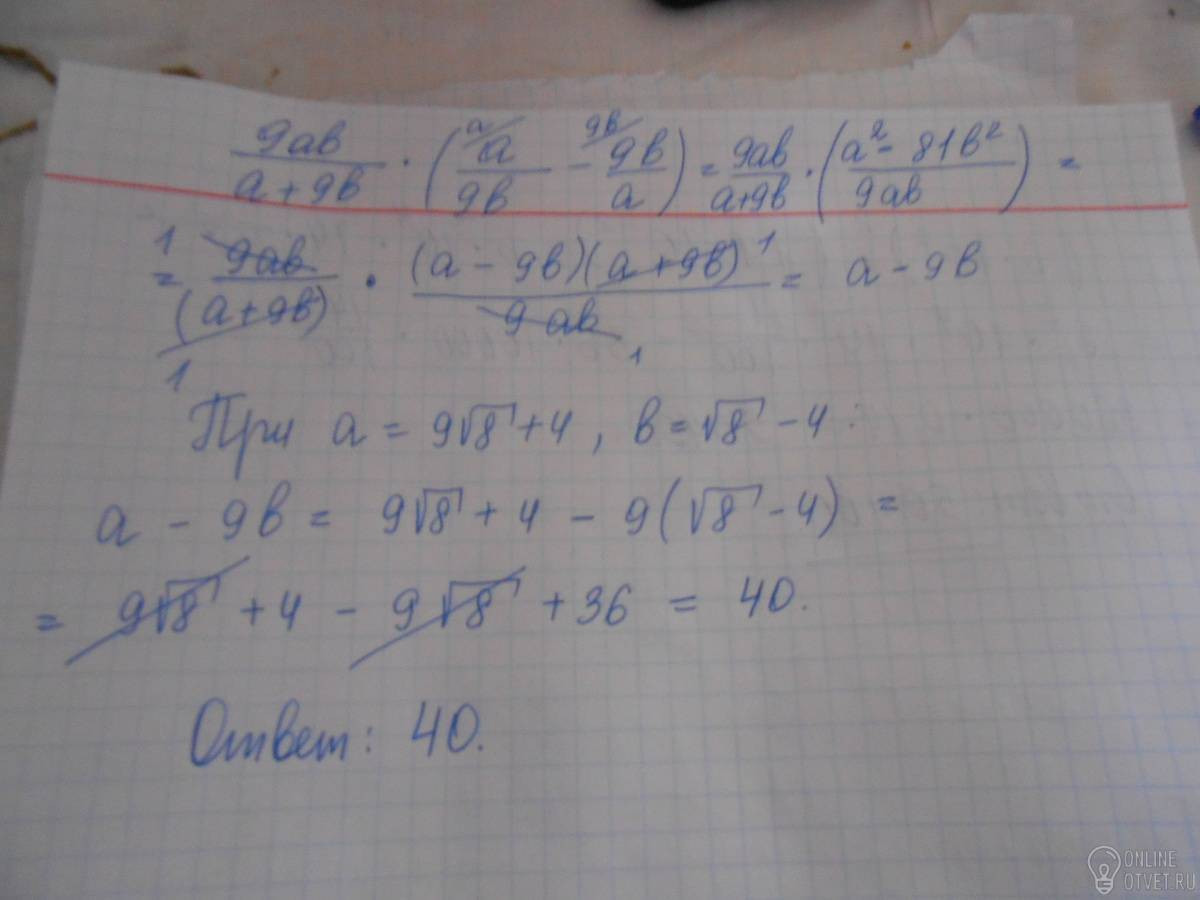 9ab/(a+9b) · (ᵃ/a/9b − ⁹ᵇ/9b/a) = 9ab/(a+9b) · (a² − 81b²/9ab) =
1 = 9ab/(a+9b) 1 · (a − 9b)(a+9b) 1/9ab 1 = a − 9b
При a = 9√8 + 4, b = √8 − 4 :
a − 9b = 9√8 + 4 − 9(√8 − 4) =
= 9√8 + 4 − 9√8 + 36 = 40.
Ответ: 40.
ONLINE
OTVET.RU